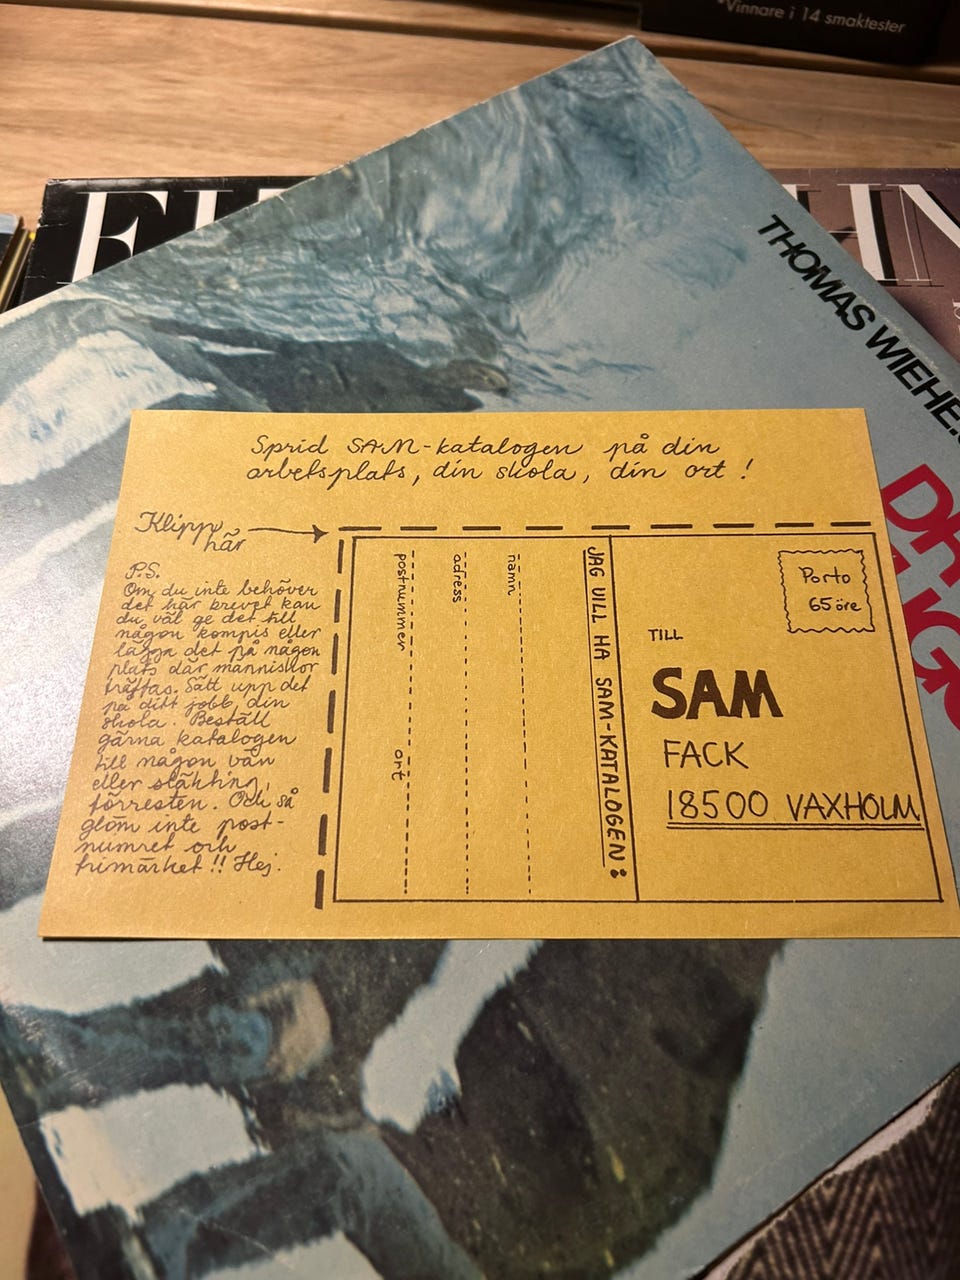 *Vinnare i 14 smaktester
THOMAS WIEHE
Sprid SAM-katalogen på din
arbetsplats, din skola, din ort!
Klipp
här
P.S.
Om du inte behöver
det här brevet kan
du väl ge det till
någon kompis eller
lägga det på någon
plats där människor
träffas. Sätt upp det
på ditt jobb, din
skola. Beställ
gärna katalogen
till någon vän
eller släkting,
förresten. Och så
glöm inte post-
numret och
frimärket!! Hej.
JAG VILL HA SAM-KATALOGEN:
namn
adress
postnummer ort
Porto
65 öre
TILL
SAM
FACK
18500 VAXHOLM